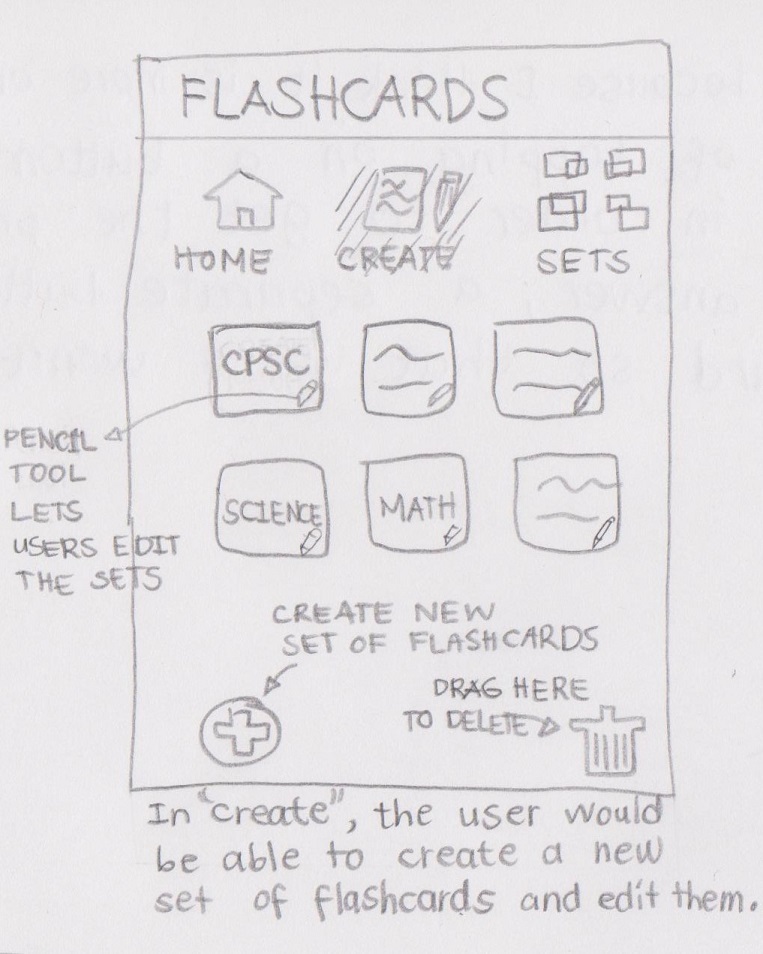 FLASHCARDS
HOME CREATE SETS
CPSC
SCIENCE MATH
PENCIL
TOOL
LETS
USERS EDIT
THE SETS
CREATE NEW
SET OF FLASHCARDS
DRAG HERE
TO DELETE
In "create", the user would
be able to create a new
set of flashcards and edit them.